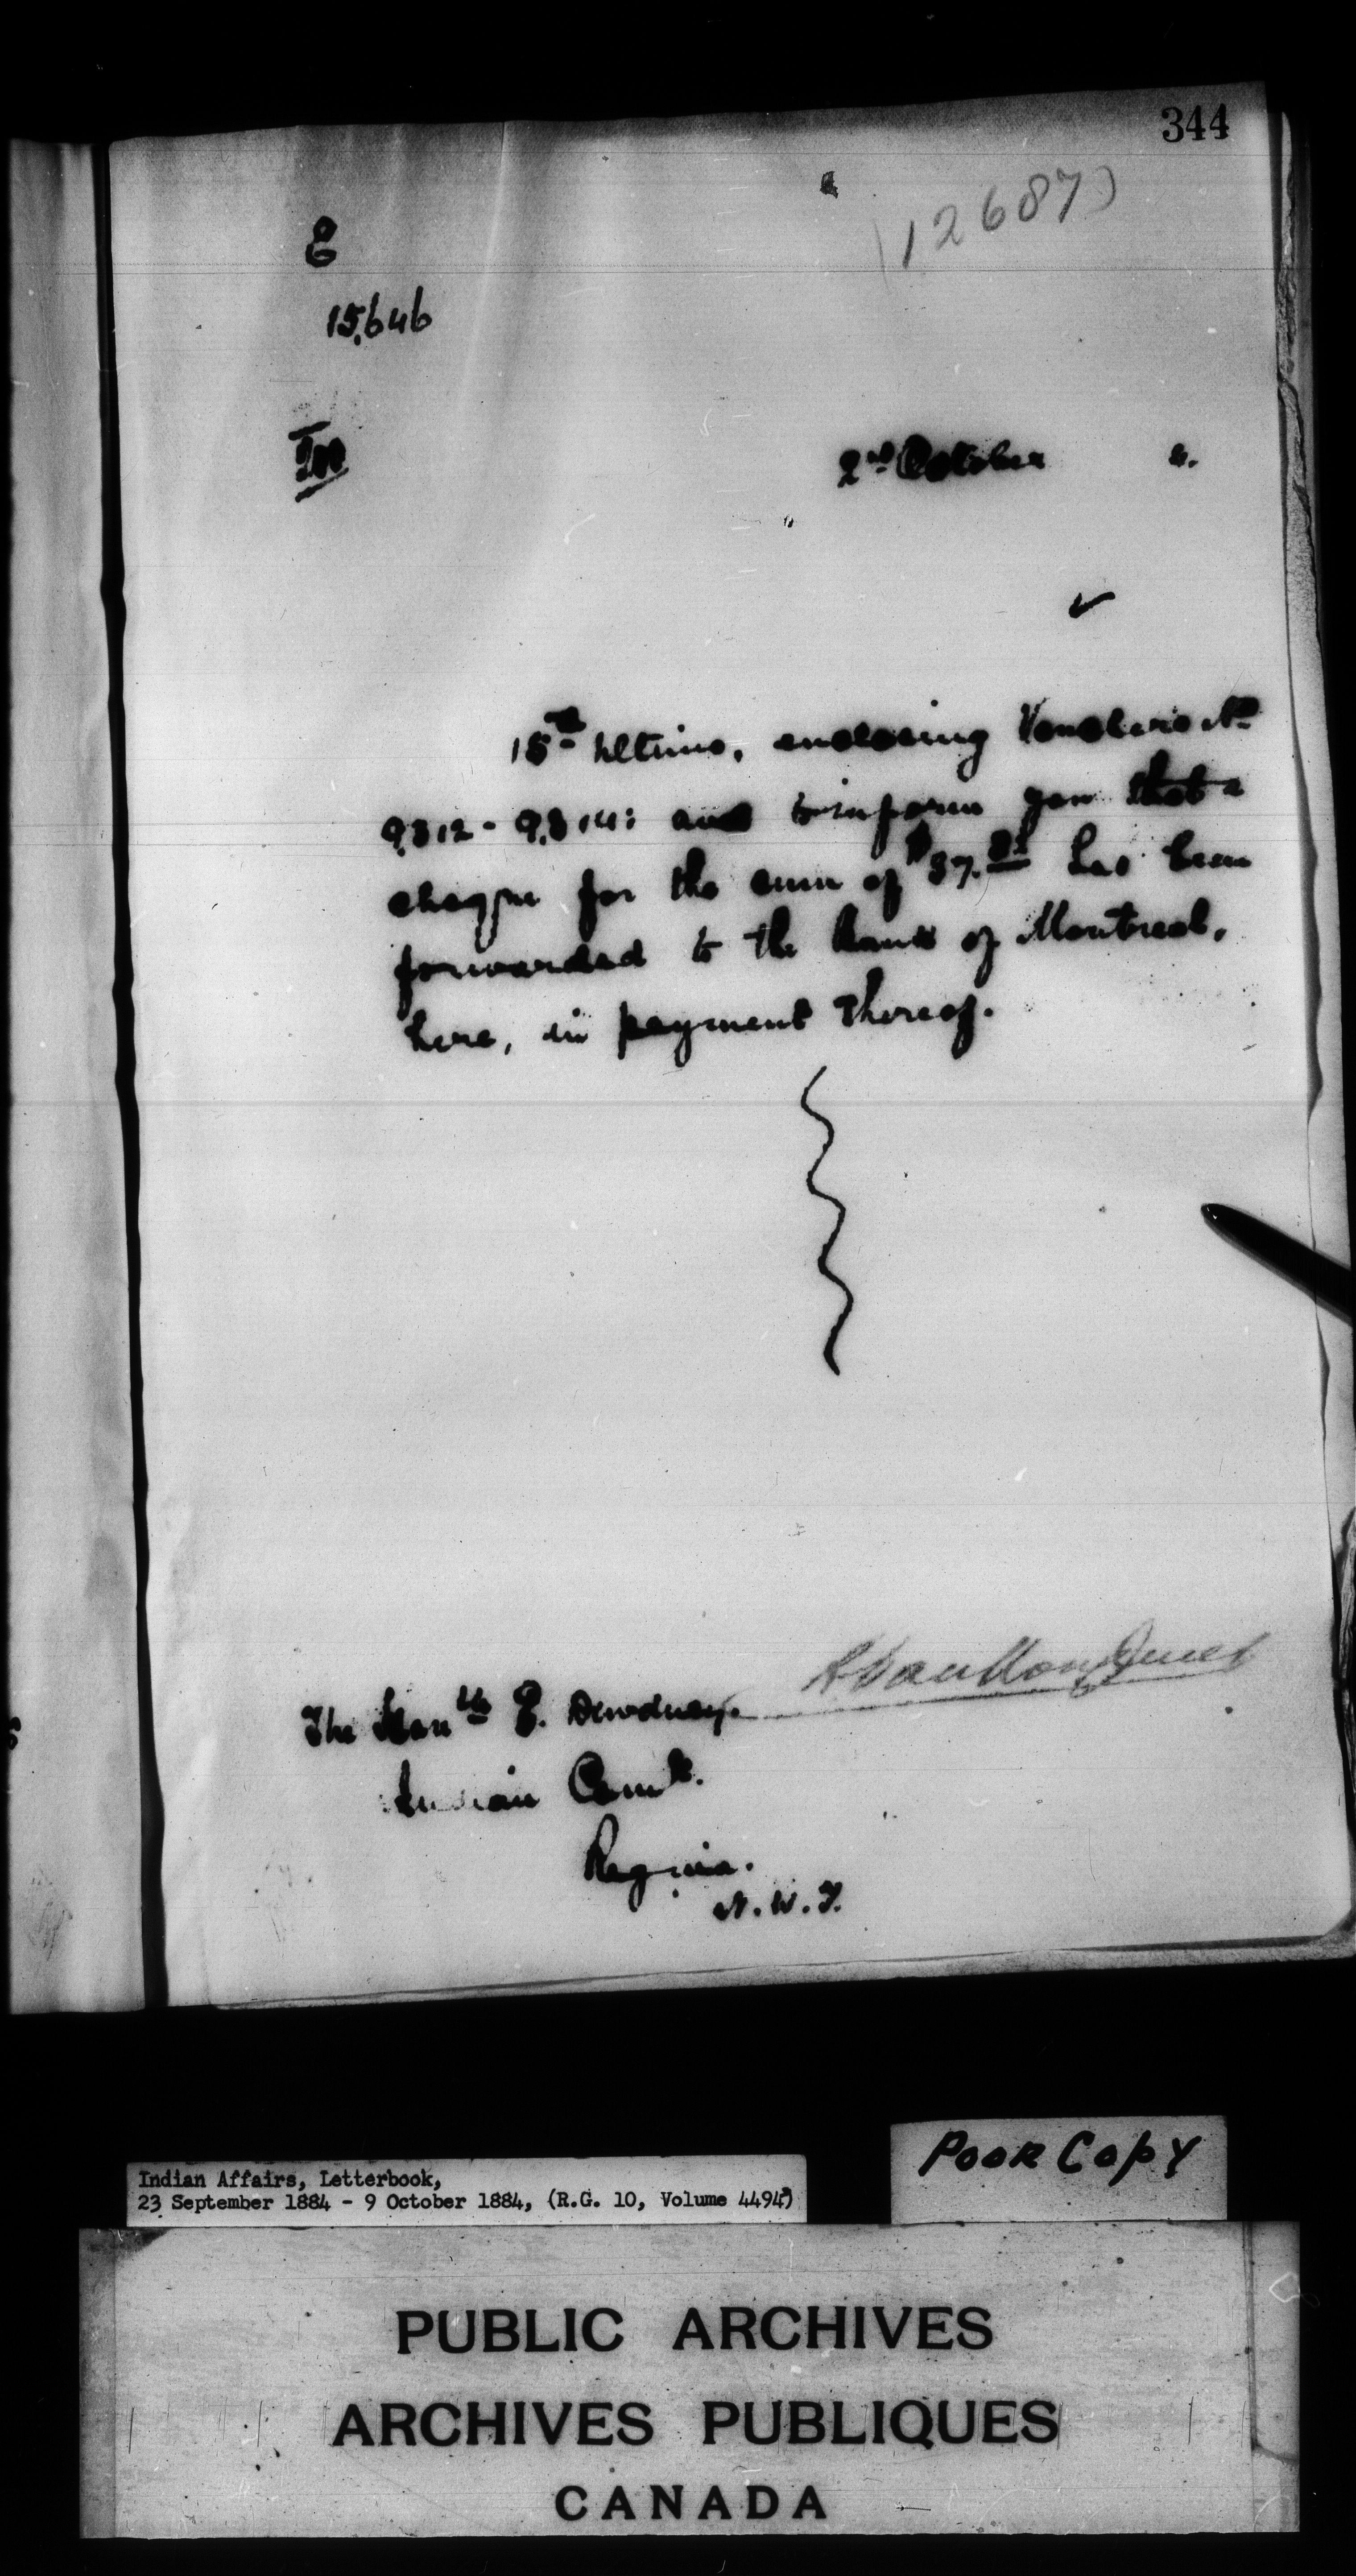 344
(12687)
E
15,646
2nd October 4.
15th ultimo, enclosing Vouchers No
9,312 - 9,314: and to inform you that a
cheque for the sum of $37. has been
forwarded to the Bank of Montreal,
here, in payment thereof.
L VanKoughnet
The Honble E. Dewdney.
Indian Comr.
Regina.
N.W.T.
Poor Copy
Indian Affairs, Letterbook,
23 September 1884 - 9 October 1884, (R.G. 10, Volume 4494)
PUBLIC ARCHIVES
ARCHIVES PUBLIQUES
CANADA